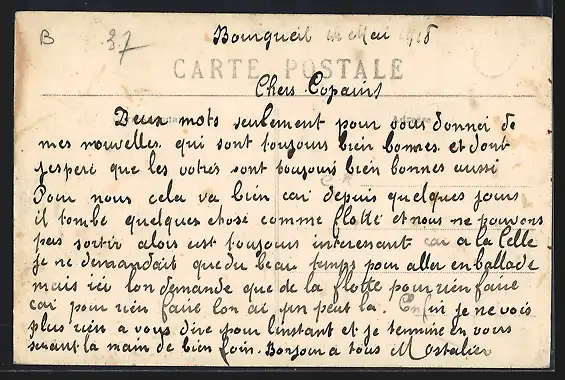 B 37 Bourgueil Mai
CARTE POSTALE
Chers Copains
Deux mots seulement pour vous donner de
mes nouvelles qui sont toujours bien bonnes et dont
jesperé que les votres sont toujours bien bonnes aussi
Pour nous cela va bien car depuis quelques jours
il tombe quelques chose comme flotte et nous ne pouvons
pas sortir alors cest toujours interessant car a la Celle
je ne demandait que du beau temps pour aller en ballade
mais ici lon demande que de la flotte pour rien faire
car pour rien faire lon ai un peut la. Enfin je ne vois
plus rien a vous dire pour linstant et je termine en vous
serrant la main de bien loin. Bonjour a tous Mostalier